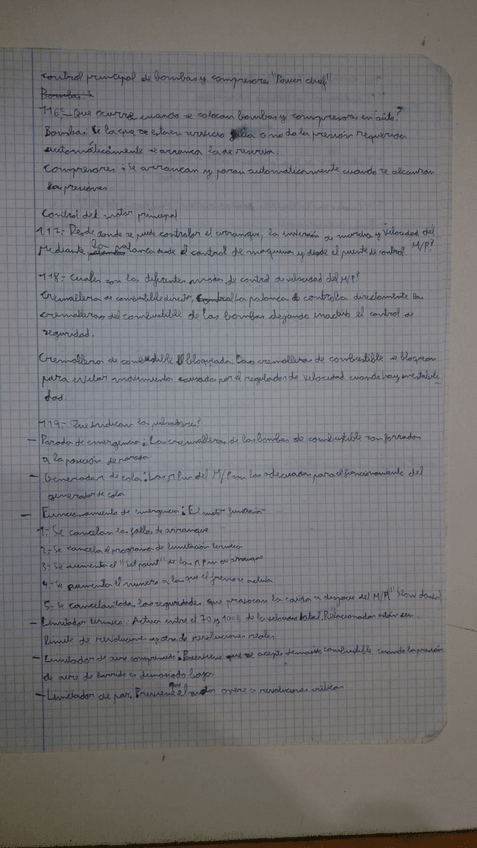 control principal de bombas y compresores "Power chief"
Bombas:
116- Que ocurre cuando se colocan bombas y compresores en auto?
Bombas: Si la que se está en servicio falla o no da la presión requerida
automáticamente se arranca la de reserva.
Compresores: Se arrancan y paran automaticamente cuando se alcanzan
las presiones
Control del motor principal
117- Desde donde se puede controlar el arranque, la inversión de marcha y velocidad del M/P?
Mediante la palanca desde el control de maquina y desde el puente de control
118- Cuales son los diferentes de control de velocidad del M/P?
Cremallera de combustible directo, la palanca controla directamente las
cremalleras del combustible de las bombas dejando inactivo el control de
seguridad.
Cremallera de combustible bloqueada. Las cremalleras de combustible se bloquean
para evitar movimientos causados por el regulador de velocidad cuando hay inestabili
dad.
119- Que indican los pulsadores?
- Parada de emergencia: La cremallera de las bombas de combustible son forzadas
a la posición de parada
- Generador de cola: Las RPM del M/P son las adecuadas para el funcionamiento del
generador de cola
- Funcionamiento de emergencia: El motor funciona
1- Se cancelan los fallos de arranque
2- Se cancela el programa de limitación termica
3- Se aumenta el "Set point" de las RPM de arranque
4- Se aumenta el numero a las que el freno actúa
5- Se cancelan todas las seguridades que provocan la caída o disparo del M/P "Slow down"
- Limitador termico: Actua entre el 70 y 100% de la velocidad total. Relacionados están en
limite de revoluciones revoluciones reales.
- Limitador de aire comprimido: Previene que se acepte demasiado combustible cuando la presión
de aire de barrido es demasiado baja
- Limitador de par. Previene que el motor opere a revoluciones criticas